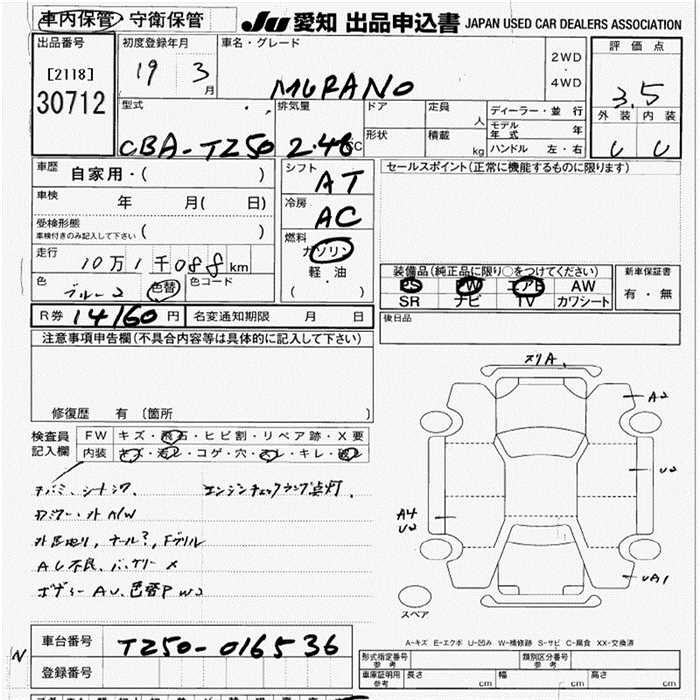 車内保管・守衛保管
JU 愛知 出品申込書 JAPAN USED CAR DEALERS ASSOCIATION
出品番号
[2118]
30712
初度登録年月
19 3月
車名・グレード
MURANO
2WD
・
4WD
評価点
3.5
外装 内装
型式
CBA-TZ50
排気量
2.48cc
ドア
形状
定員 人
積載 kg
ディーラー・並行
モデル年式 年
ハンドル 左・右
車歴
自家用・( )
車検
年 月( 日)
受検形態
車検付きのみ記入して下さい ( )
走行
10万1千088km
色
色替
色コード
シフト
AT
冷房
AC
燃料
ガソリン
軽・油
( ・ )
セールスポイント(正常に機能するものに限ります)
装備品(純正品に限り〇をつけてください)
PS PW エアB AW
SR ナビ TV カワシート
新車保証書
有・無
R券 14160円
名変通知期限 月 日
後日品
注意事項申告欄(不具合内容等は具体的に記入して下さい)
修復歴 有 〔箇所 〕
検査員
記入欄
FW キズ・飛石・ヒビ割・リペア跡・X要
内装 キズ・汚レ・コゲ・穴・スレ・キレ・破レ
エンジンチェックランプ点灯.
AC不良、バッテリーX
スリA.
A2
U2
A4
U2
UA1
スペア
A-キズ E-エクボ U-凹み W-補修跡 S-サビ C-腐食 XX-交換済
車台番号
TZ50-016536
登録番号
N
形式指定番号
参考
類別区分番号
参考
車庫証明用
参考
長さ cm
幅 cm
高さ cm